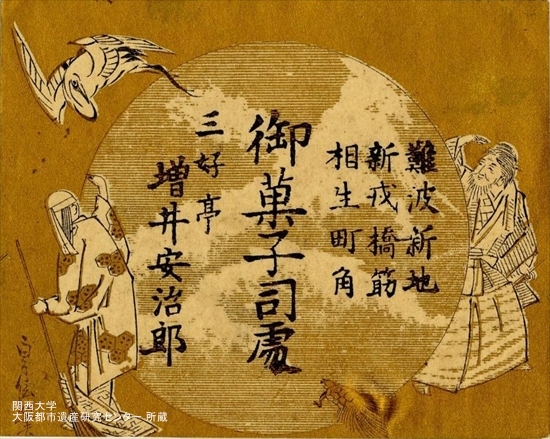 難波新地
新戎橋筋
相生町角
御菓子司處
三好亭
増井安治郎
関西大学
大阪都市遺産研究センター 所蔵